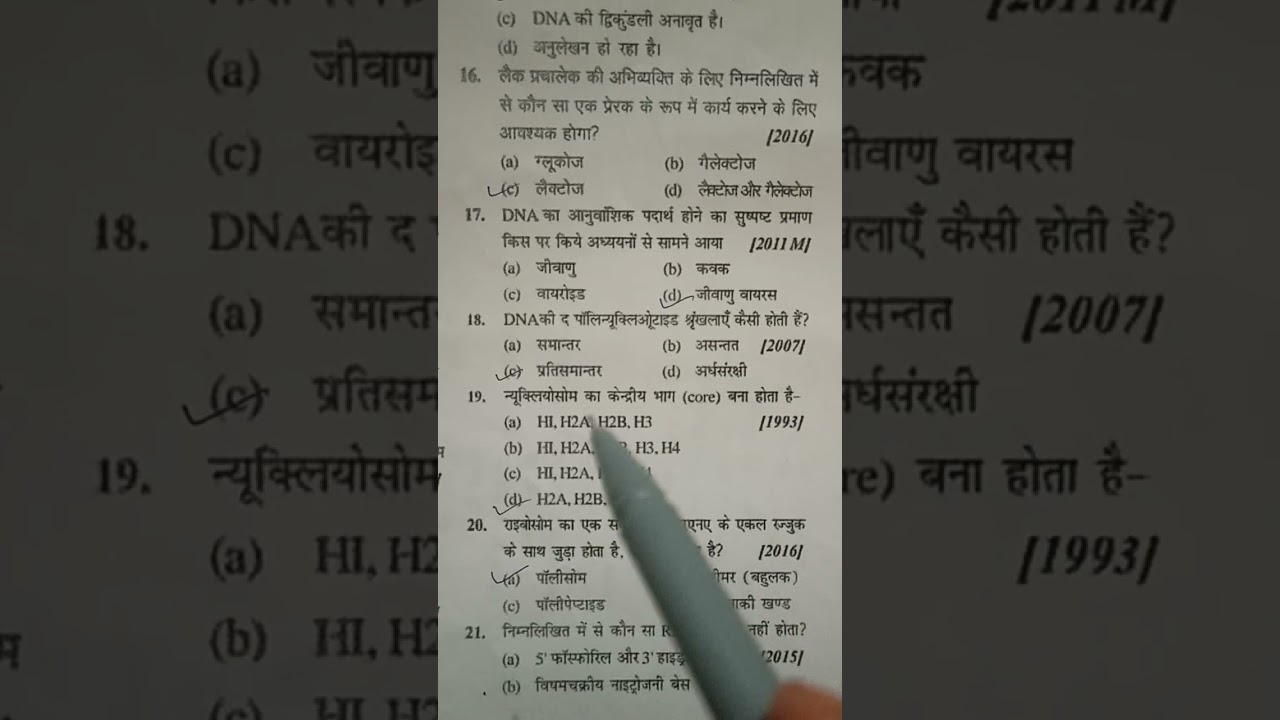 (c) DNA की द्विकुंडली अनावृत है।
(d) अनुलेखन हो रहा है।
16. लैक प्रचालेक की अभिव्यक्ति के लिए निम्नलिखित में
से कौन सा एक प्रेरक के रूप में कार्य करने के लिए
आवश्यक होगा? [2016]
(a) ग्लूकोज (b) गैलेक्टोज
(c) लैक्टोज (d) लैक्टोज और गैलेक्टोज
17. DNA का आनुवांशिक पदार्थ होने का सुष्पष्ट प्रमाण
किस पर किये अध्ययनों से सामने आया [2011 M]
(a) जीवाणु (b) कवक
(c) वायरोइड (d) जीवाणु वायरस
18. DNA की द पॉलिन्यूक्लिओ्टाइड श्रृंखलाएँ कैसी होती हैं?
(a) समान्तर (b) असन्तत [2007]
(c) प्रतिसमान्तर (d) अर्धसंरक्षी
19. न्यूक्लियोसोम का केन्द्रीय भाग (core) बना होता है-
(a) HI, H2A, H2B, H3 [1993]
(b) HI, H2A, H3, H4
(c) HI, H2A,
(d) H2A, H2B,
20. राइबोसोम का एक के एकल रज्जुक
के साथ जुड़ा होता है, है? [2016]
(a) पॉलीसोम (बहुलक)
(c) पॉलीपेप्टाइड खण्ड
21. निम्नलिखित में से कौन सा नहीं होता?
(a) 5' फॉस्फोरिल और 3' 2015]
(b) विषमचक्रीय नाइट्रोजनी बेस